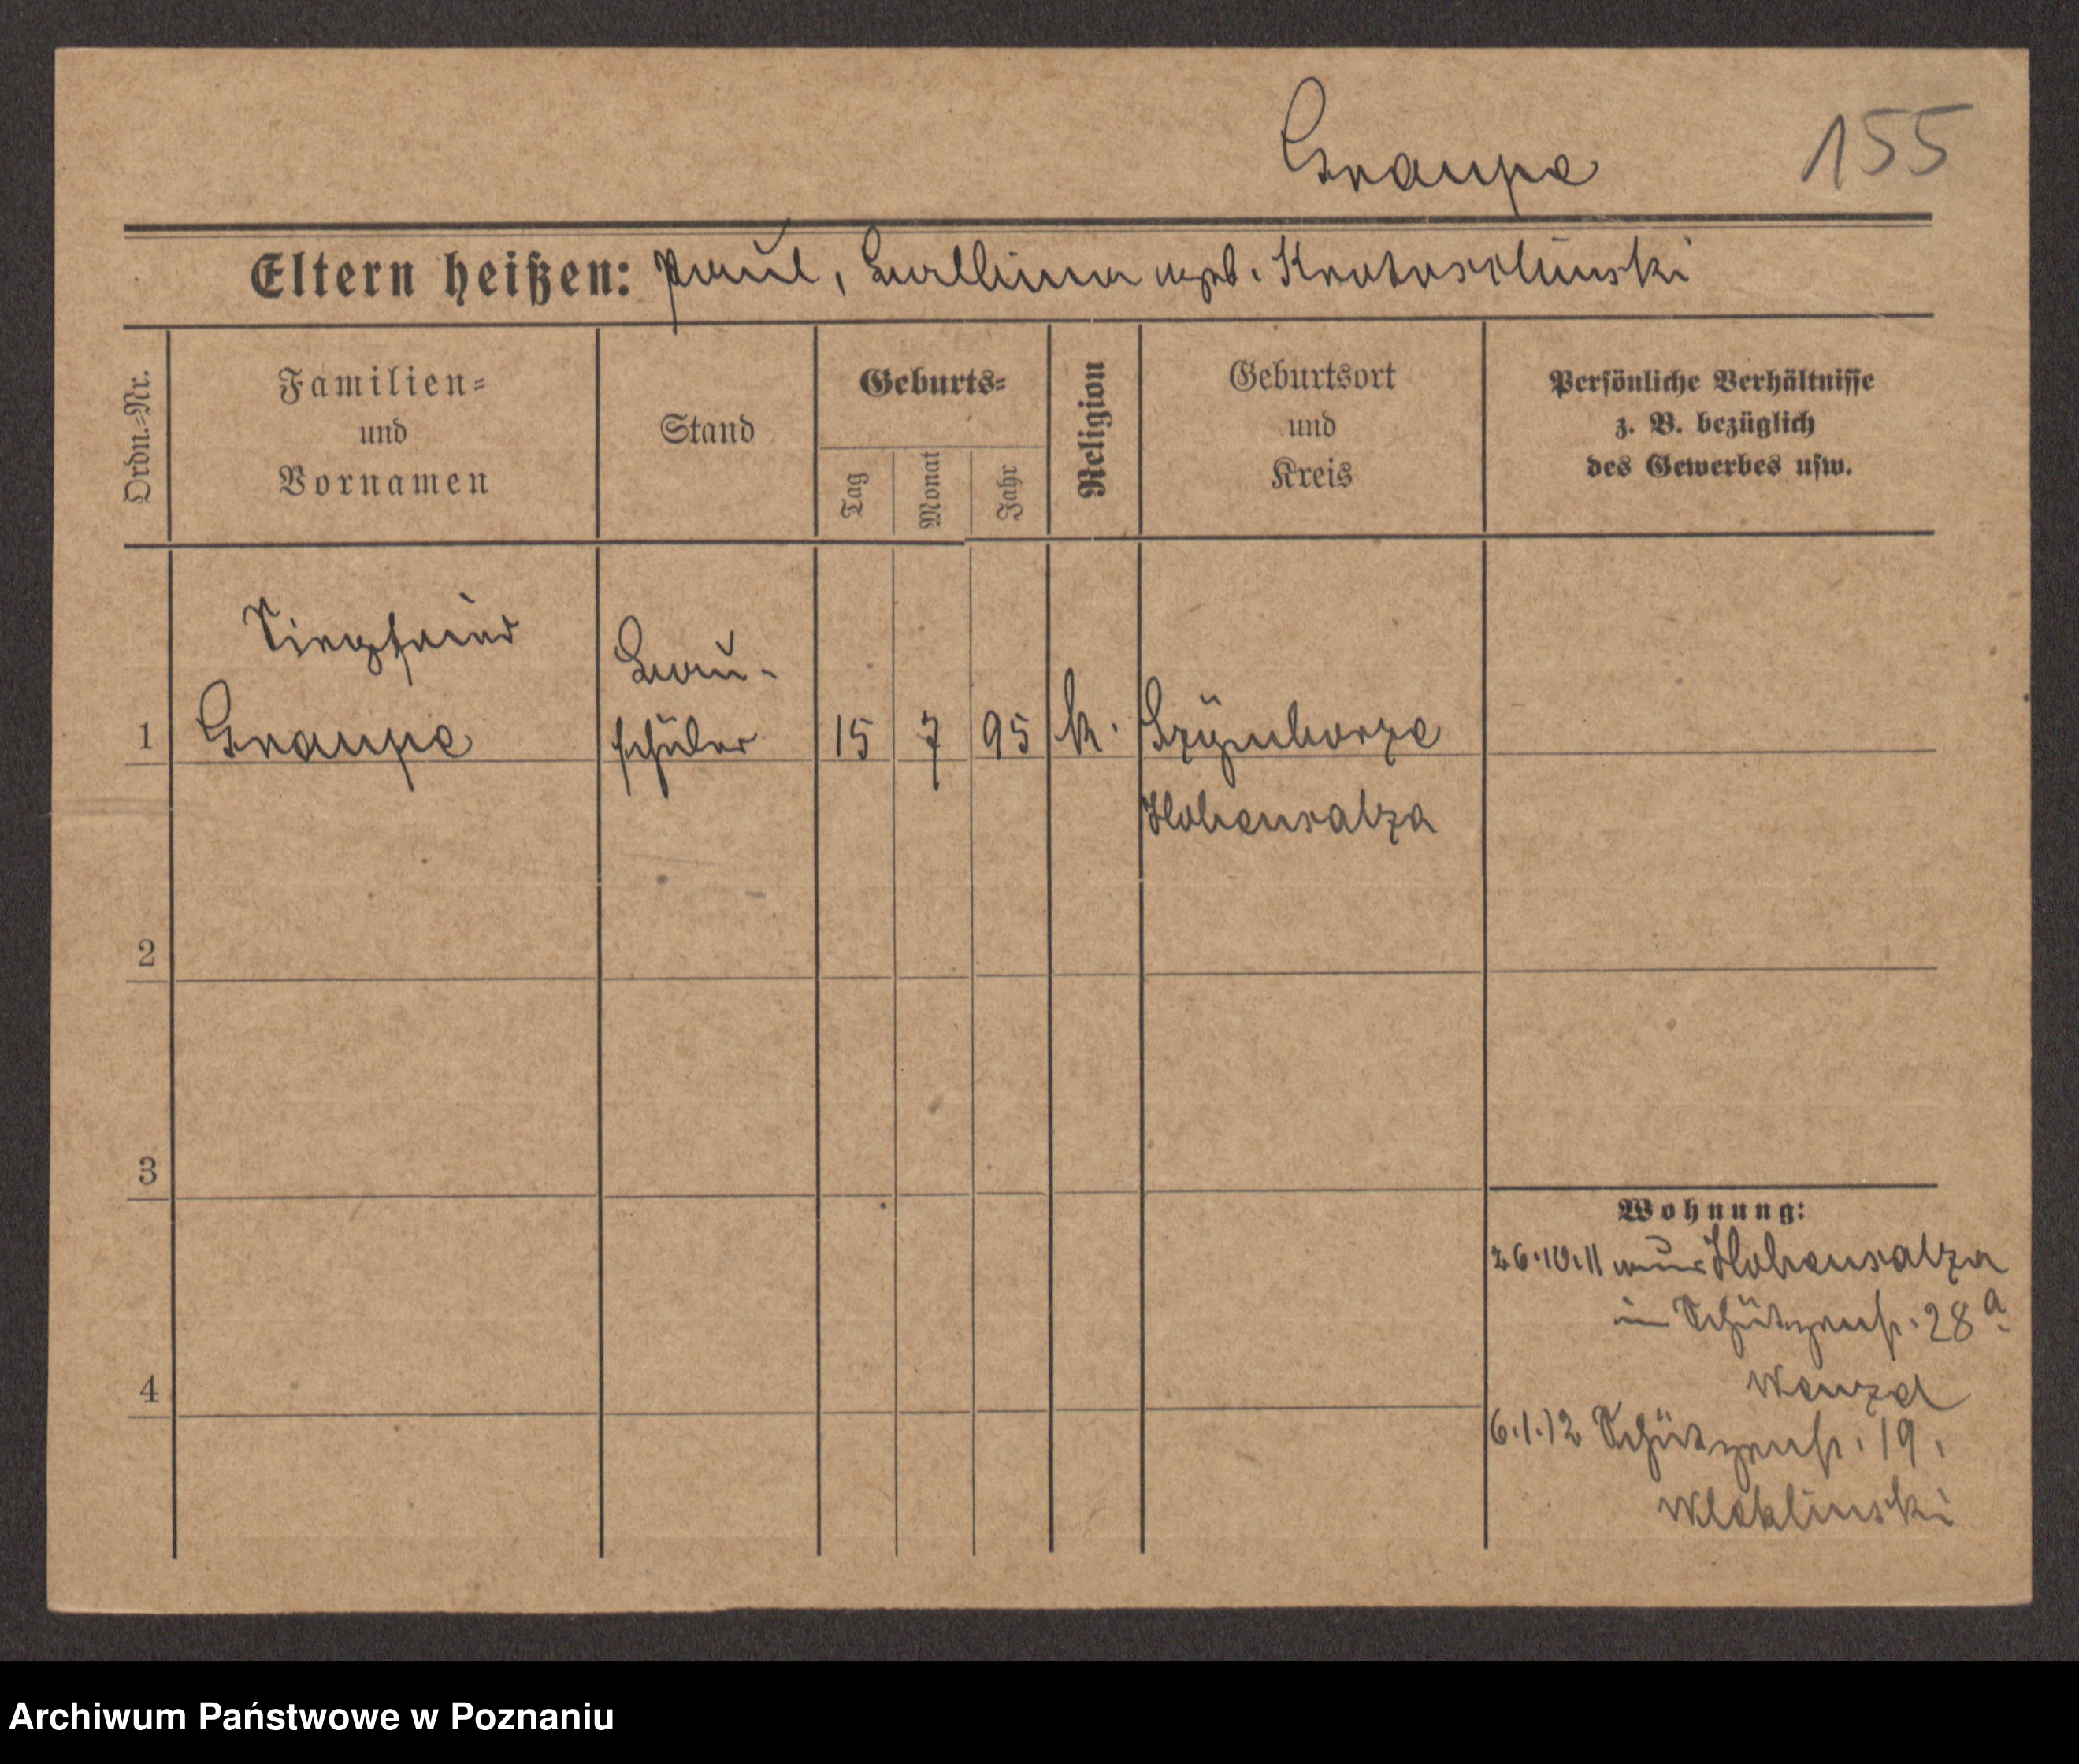 Graupe 155
Eltern heißen: Paul, Ballina geb. Krotoschinski
Ordn.-Nr.
Familien-
und
Vornamen
Stand
Geburts-
Tag
Monat
Jahr
Religion
Geburtsort
und
Kreis
Persönliche Verhältnisse
z. B. bezüglich
des Gewerbes usw.
Siegfried
Bau-
1 Graupe schüler 15 7 95 k. Szÿmborze
Hohensalza
2
3
4
Wohnung:
26.10.11 aus Hohensalza
in Schützenstr. 28 a
Wenzel
6.1.12 Schützenstr. 19.
Wleklinski
Archiwum Państwowe w Poznaniu